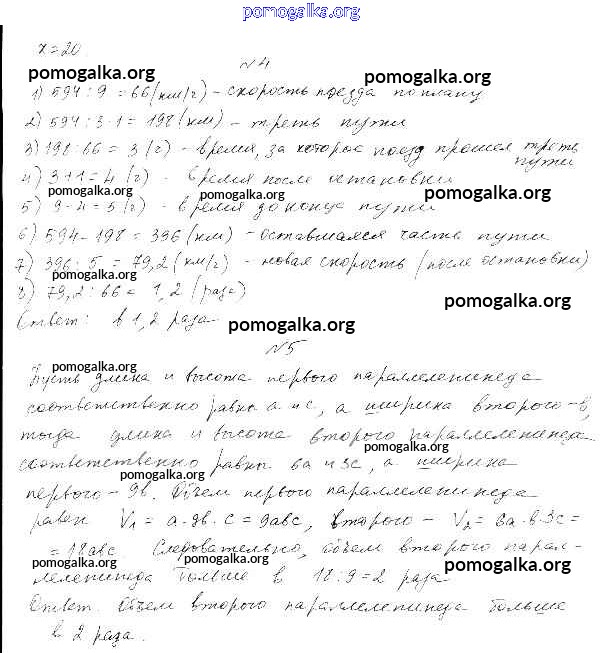 pomogalka.org
x=20
№4
pomogalka.org pomogalka.org
1) 594:9=66(км/г) - скорость поезда по плану
2) 594:3·1=198(км) - треть пути
3) 198:66=3(г) - время, за которое поезд прошел треть
пути
4) 3+1=4(г) - время после остановки
pomogalka.org pomogalka.org pomogalka.org
5) 9-4=5(г) - время до конца пути
6) 594-198=396(км) - оставшаяся часть пути
7) 396:5=79,2(км/г) - новая скорость (после остановки)
pomogalka.org
8) 79,2:66=1,2(раза)
pomogalka.org
Ответ: в 1,2 раза
pomogalka.org
№5
pomogalka.org
Пусть длина и высота первого параллелепипеда
соответственно равна a и c, а ширина второго - b,
тогда длина и высота второго параллелепипеда
pomogalka.org
соответственно равны 6a и 3c, а ширина
pomogalka.org
первого - 9b. Объем первого параллелепипеда
равен V₁ = a·9b·c=9abc, второго - V₂=6a·b·3c=
=18abc Следовательно, объем второго парал-
лелепипеда больше в 18:9=2 раза
pomogalka.org pomogalka.org
Ответ. Объем второго параллелепипеда больше
в 2 раза.